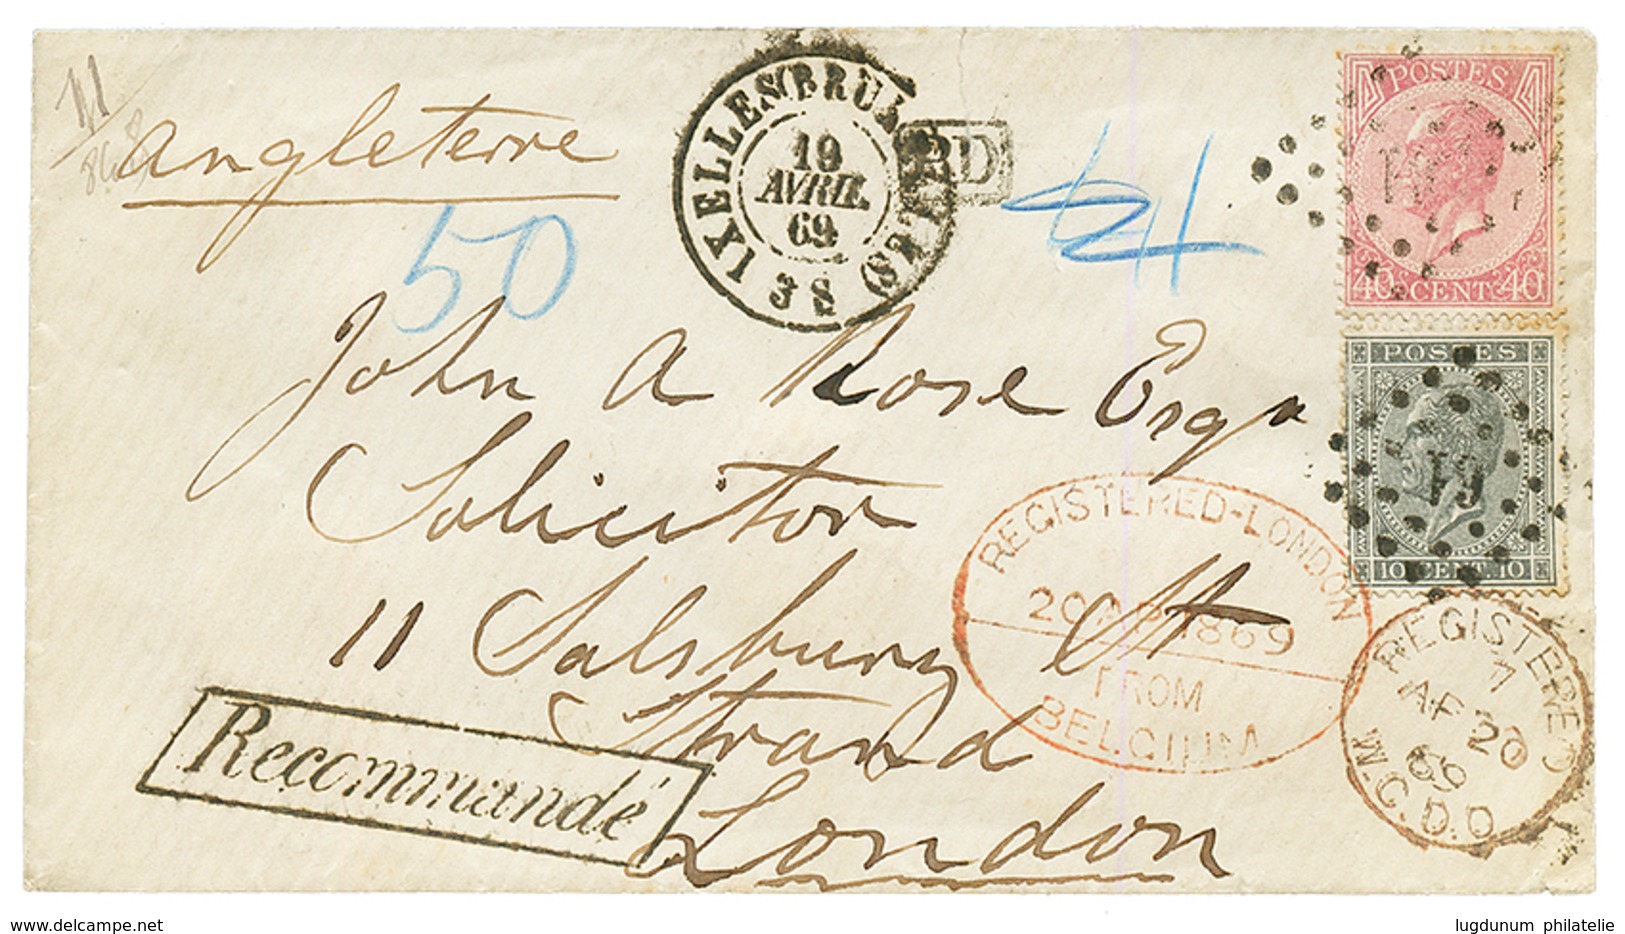 Angleterre
50
IXELLES (BRUXELLES)
19
AVRIL
69
3 S
PD
POSTES
40 CENT 40
POSTES
10 CENT. 10
John A Rose Esqr
Solicitor
11 Salsbury St
Strand
London
Recommandé
REGISTERED-LONDON
20 AP 1869
FROM
BELGIUM
REGISTERED
AP 20
69
W.C.D.O
www.delcampe.net
lugdunum philatelie